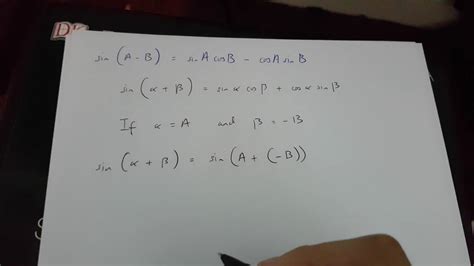 sin (A - B) = sin A cos B - cos A sin B
sin (α + β) = sin α cos β + cos α sin β
If α = A and β = -B
sin (α + β) = sin (A + (-B))